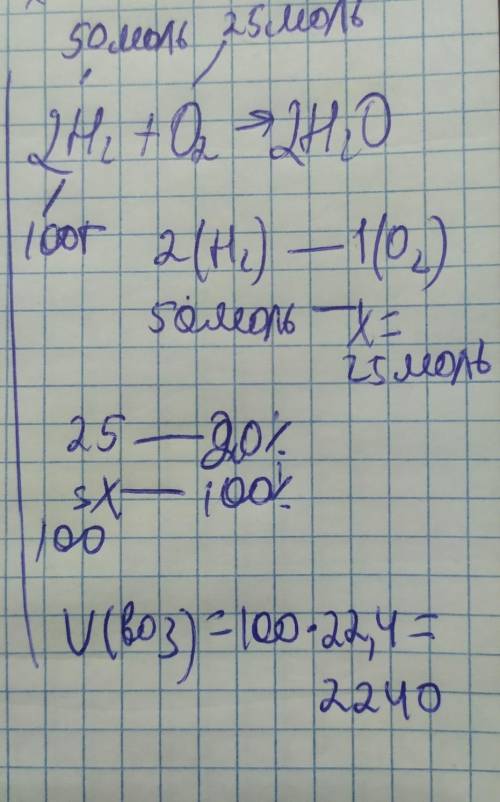 50моль 25моль
2H₂ + O₂ → 2H₂O
100г
2(H₂) — 1(O₂)
50моль — X =
25моль
25 — 20%
X — 100%
100
V(воз) = 100·22,4 =
2240